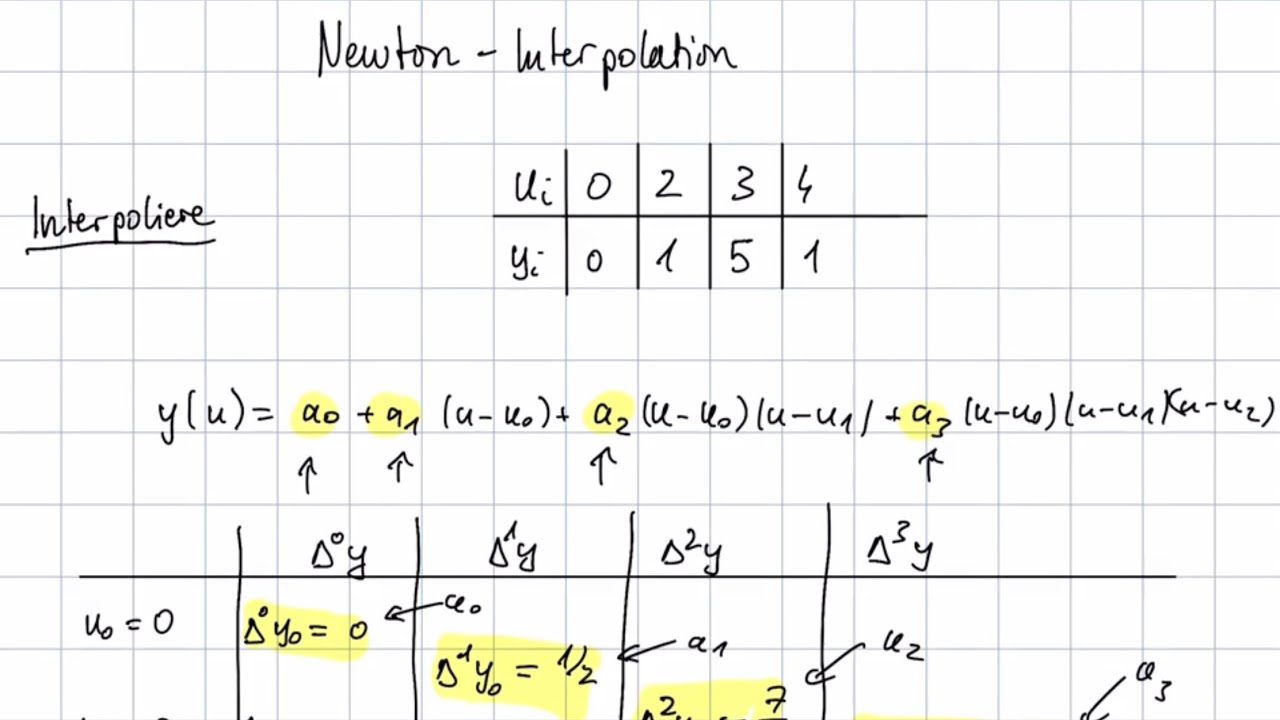 Newton - Interpolation
Interpoliere
ui 0 2 3 4
yi 0 1 5 1
y(u) = a0 + a1 (u-u0) + a2 (u-u0)(u-u1) + a3 (u-u0)(u-u1)(u-u2)
↑ ↑ ↑ ↑
Δ⁰y Δ¹y Δ²y Δ³y
u0 = 0 Δ⁰y0 = 0 ← a0
Δ¹y0 = 1/2 ← a1 a2
a3
7